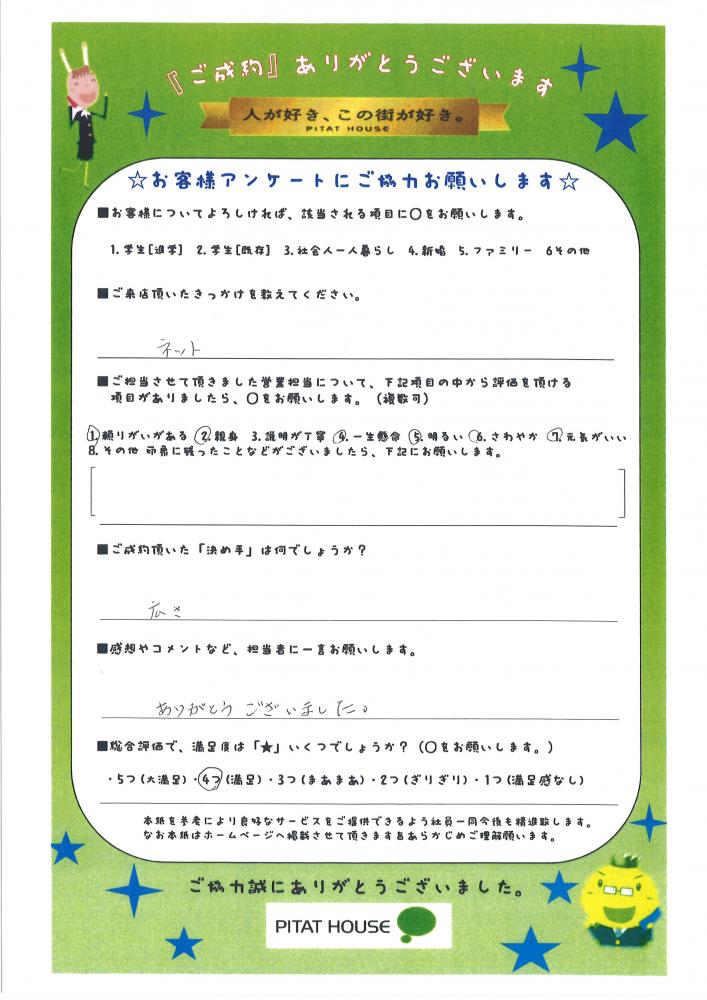 『ご成約』ありがとうございます
人が好き、この街が好き。
PITAT HOUSE
☆お客様アンケートにご協力お願いします☆
■お客様についてよろしければ、該当される項目に〇をお願いします。
1.学生[進学] 2.学生[既存] 3.社会人一人暮らし 4.新婚 5.ファミリー 6その他
■ご来店頂いたきっかけを教えてください。
ネット
■ご担当させて頂きました営業担当について、下記項目の中から評価を頂ける
項目がありましたら、〇をお願いします。（複数可）
1.頼りがいがある 2.親身 3.説明が丁寧 4.一生懸命 5.明るい 6.さわやか 7.元気がいい
8.その他 印象に残ったことなどがございましたら、下記にお願いします。
■ご成約頂いた「決め手」は何でしょうか？
広さ
■感想やコメントなど、担当者に一言お願いします。
ありがとうございました。
■総合評価で、満足度は「★」いくつでしょうか？（〇をお願いします。）
・5つ(大満足)・4つ(満足)・3つ(まあまあ)・2つ(ぎりぎり)・1つ(満足感なし)
本紙を参考により良好なサービスをご提供できるよう社員一同今後も精進致します。
なお本紙はホームページへ掲載させて頂きます旨あらかじめご理解願います。
ご協力誠にありがとうございました。
PITAT HOUSE